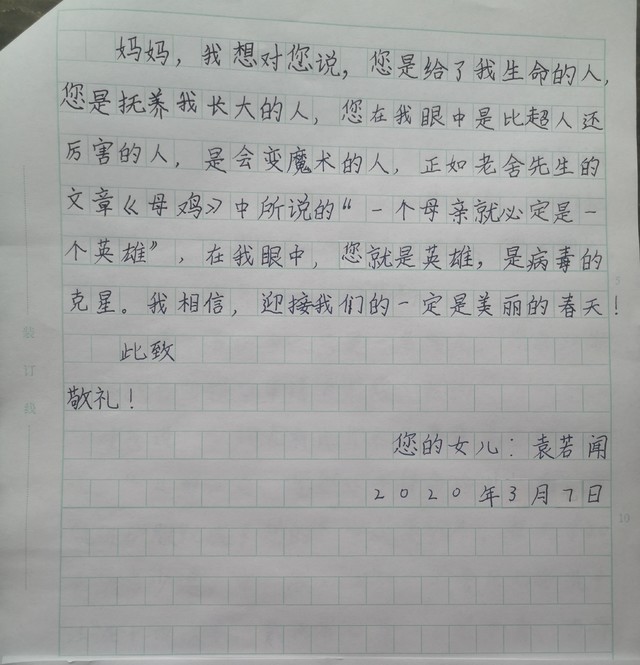 妈妈，我想对您说，您是给了我生命的人，
您是抚养我长大的人，您在我眼中是比超人还
厉害的人，是会变魔术的人，正如老舍先生的
文章《母鸡》中所说的“一个母亲就必定是一
个英雄”，在我眼中，您就是英雄，是病毒的
克星。我相信，迎接我们的一定是美丽的春天！
此致
敬礼！
您的女儿：袁若闻
2020年3月7日
装订线
5
10